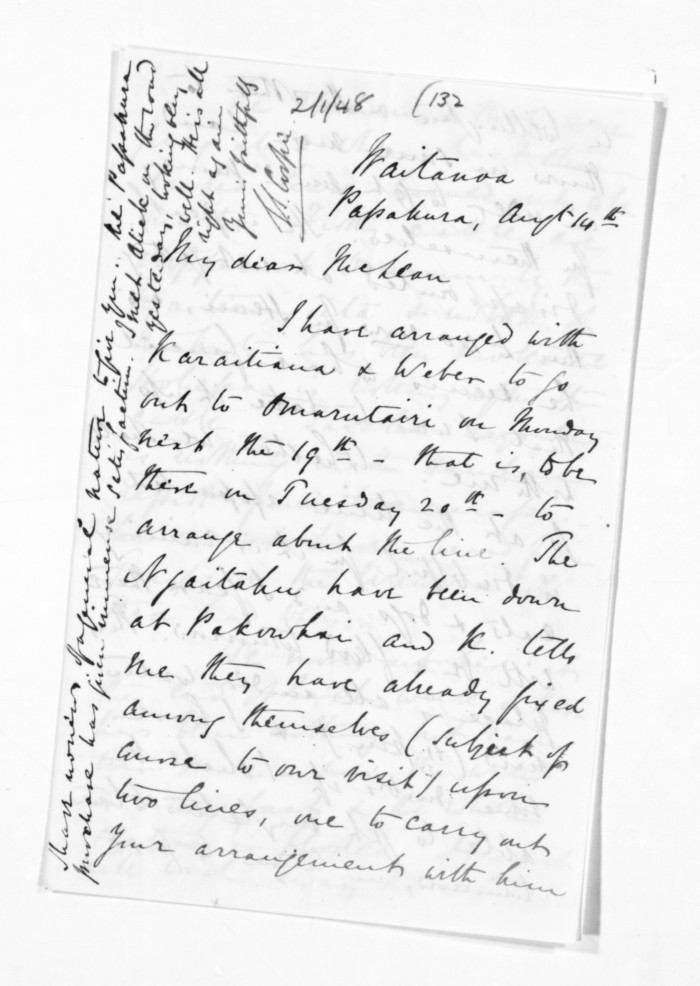 2/1/48
(132
Waitanoa
Papakura, Augt 14th
My dear McLean
I have arranged with
Karaitiana & Weber to go
out to Omarutairi on Monday
next the 19th - that is, to be
there on Tuesday 20th - to
arrange about the line. The
Ngaitahu have been down
at Pakowhai and K. tells
me they have already fixed
among themselves (subject of
course to our visit) upon
two lines, one to carry out
your arrangements with him
I have no news of a general nature to give you. The Papakura
purchase has given immense satisfaction. I met Alick on the road
yesterday, looking very
well. He is all
right again
Yours faithfully